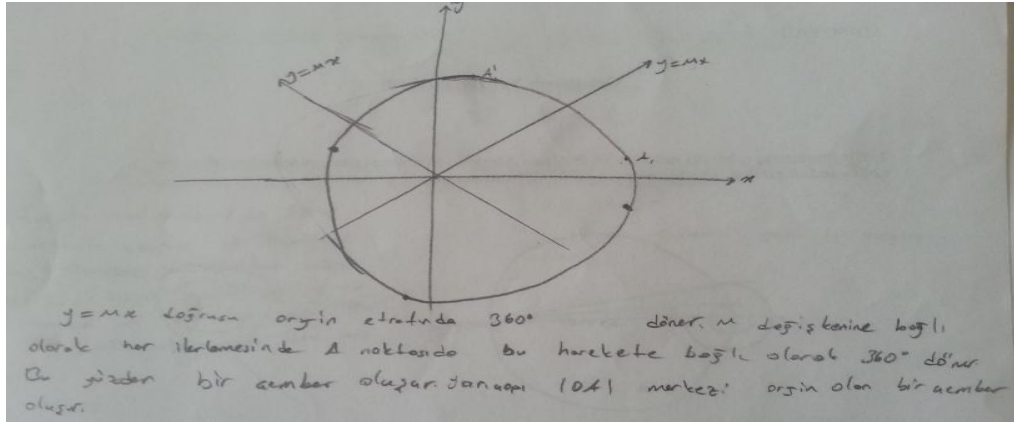 y
y=mx
A'
y=mx
A,
x
y=mx doğrusu orjin etrafında 360° döner. m değişkenine bağlı
olarak her ilerlemesinde A noktasıda bu harekete bağlı olarak 360° döner.
Bu yüzden bir çember oluşur. yarıçapı |OA| merkezi orjin olan bir çember
oluşur.